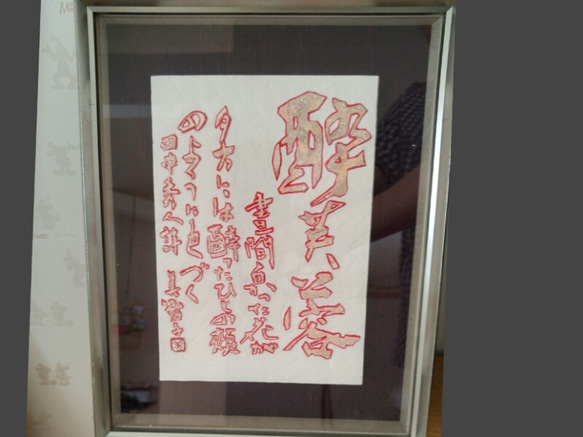 酔芙蓉
昼間白かった花が
夕方には酔ったひとの頬
のように色づく
田中秀人詩